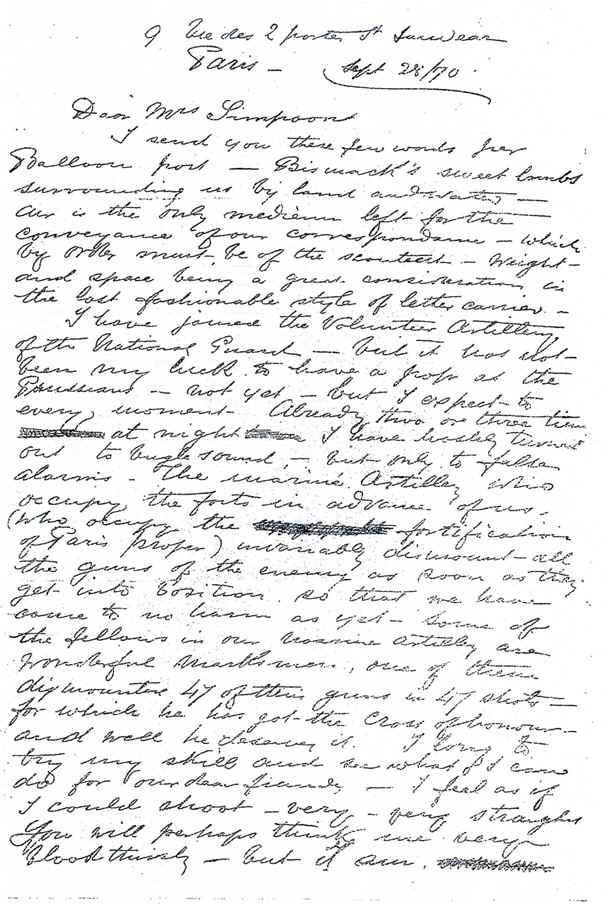 9 Rue des 2 portes St Sauveur
Paris — Sept 28/70.
Dear Mrs Simpson
I send you these few words per
Balloon post — Bismack's sweet lambs
surrounding us by land and water —
air is the only medium left for the
conveyance of our correspondance — which
by order must be of the scantiest — Weight —
and space being a great consideration in
the last fashionable style of letter carrier. —
I have joined the Volunteer Artillery
of the National Guard — but it has not
been my luck to have a pop at the
Prussians — not yet — but I expect to
every moment. Already two or three times
at night I have hastily turned
out to bugle sound, — but only to false
alarms — The marine Artillery who
occupy the forts in advance of us.
(who occupy the fortification
of Paris proper) invariably dismount all
the guns of the enemy as soon as they
get into position. so that we have
come to no harm as yet — Some of
the fellows in our marine artillery are
wonderful marksmen, one of them
dismounted 47 of their guns in 47 shots —
for which he has got the Cross of honour —
and well he deserves it. I long to
try my skill and see what I can
do for our dear friends — I feel as if
I could shoot — very — very straight
You will perhaps think me very
bloodthirsty — but it am.